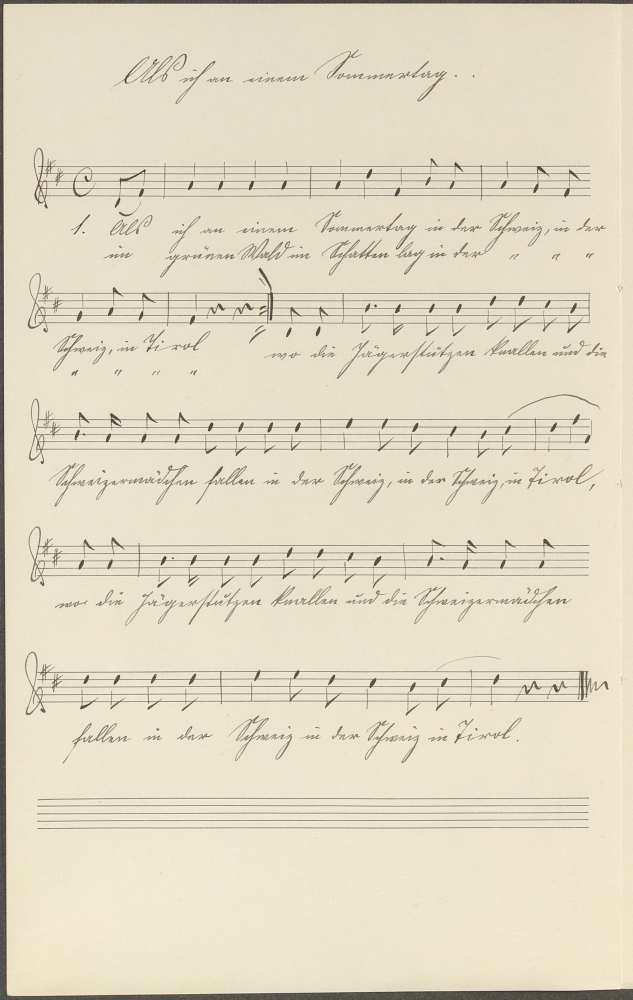 Als ich an einem Sommertag. .
1. Als ich an einem Sommertag in der Schweiz, in der
im grünen Wald im Schatten lag in der " " "
Schweiz, in Tirol wo die Jägerstutzen knallen und die
" " " "
Schweizermädchen fallen in der Schweiz, in der Schweiz, in Tirol,
wo die Jägerstutzen knallen und die Schweizermädchen
fallen in der Schweiz in der Schweiz in Tirol.